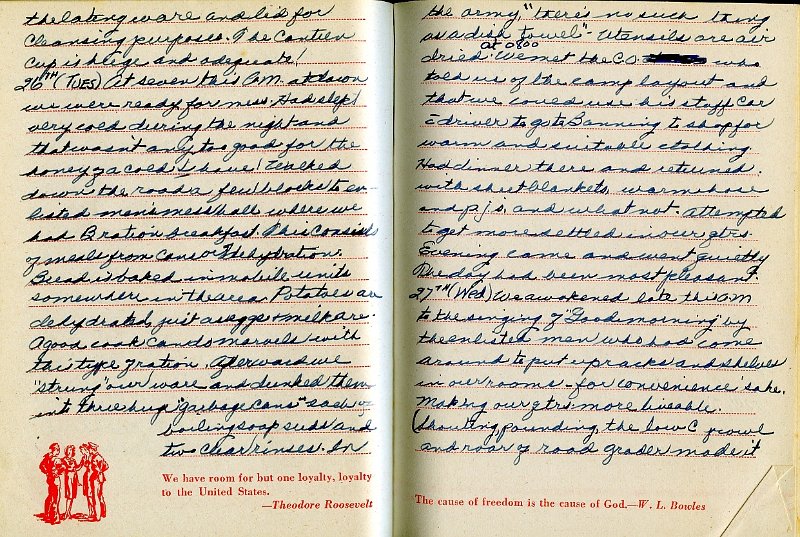 the eating ware and lid for
cleansing purposes. The canteen
cup is huge and adequate!
26TH (TUES) At seven this A.M. at dawn
we were ready for mess. Had slept
very cold during the night and
that wasn't any too good for the
honey of a cold I have! Walked
down the road a few blocks to en-
listed men's mess hall where we
had B ration breakfast. This consists
of meals from cans or dehydration.
Bread is baked in mobile units
somewhere in the area. Potatoes are
dehydrated, just as eggs & milk are.
A good cook can do marvels with
this type of ration. Afterward we
"strung" our ware and dunked them
into three huge "garbage cans"
boiling soap suds and
two clear rinses. In
We have room for but one loyalty, loyalty
to the United States.
—Theodore Roosevelt
the army "there's no such thing
as a dish towel" - Utensils are air
dried. at 0800 We met the C.O. who
told us of the camp layout and
that we could use his staff car
& driver to go to Banning to shop for
warm and suitable clothing.
Had dinner there and returned
with sheet blankets, warm hose
and p.j.s, and what not. Attempted
to get more settled in our qtrs.
Evening came and went quietly
The day had been most pleasant.
27TH (Wed) We awakened late this A.M
to the singing of "Good morning" by
the enlisted men who had come
around to put up racks and shelves
in our rooms - for convenience sake.
Making our qtrs more liveable.
(Shouting, pounding, the low C growl
and roar of road grader made it
The cause of freedom is the cause of God.—W. L. Bowles